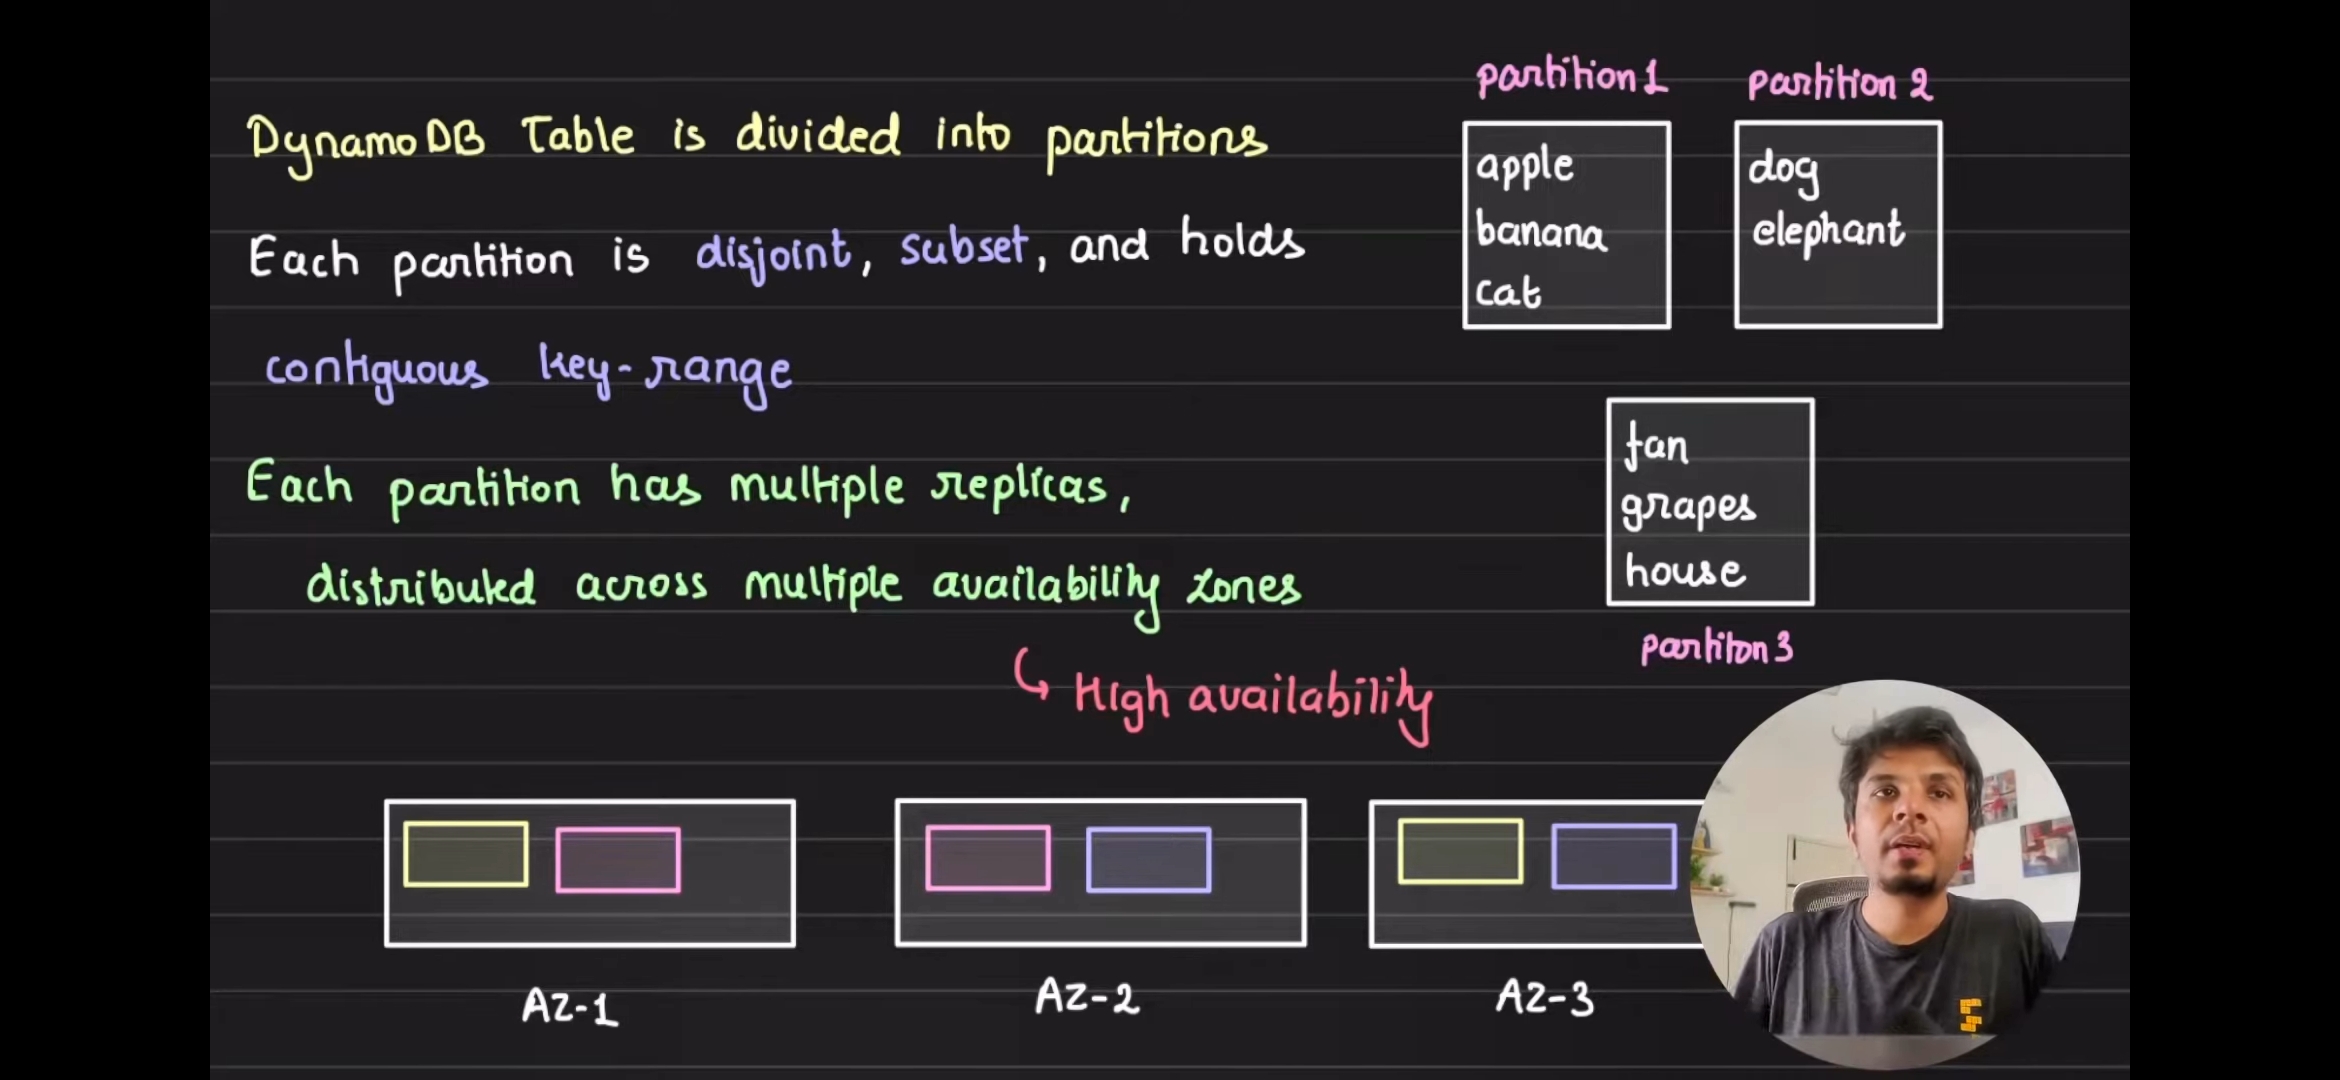 DynamoDB Table is divided into partitions
Each partition is disjoint, subset, and holds
contiguous key-range
Each partition has multiple replicas,
distributed across multiple availability zones
High availability
partition 1
apple
banana
cat
partition 2
dog
elephant
fan
grapes
house
partiton 3
AZ-1
AZ-2
AZ-3